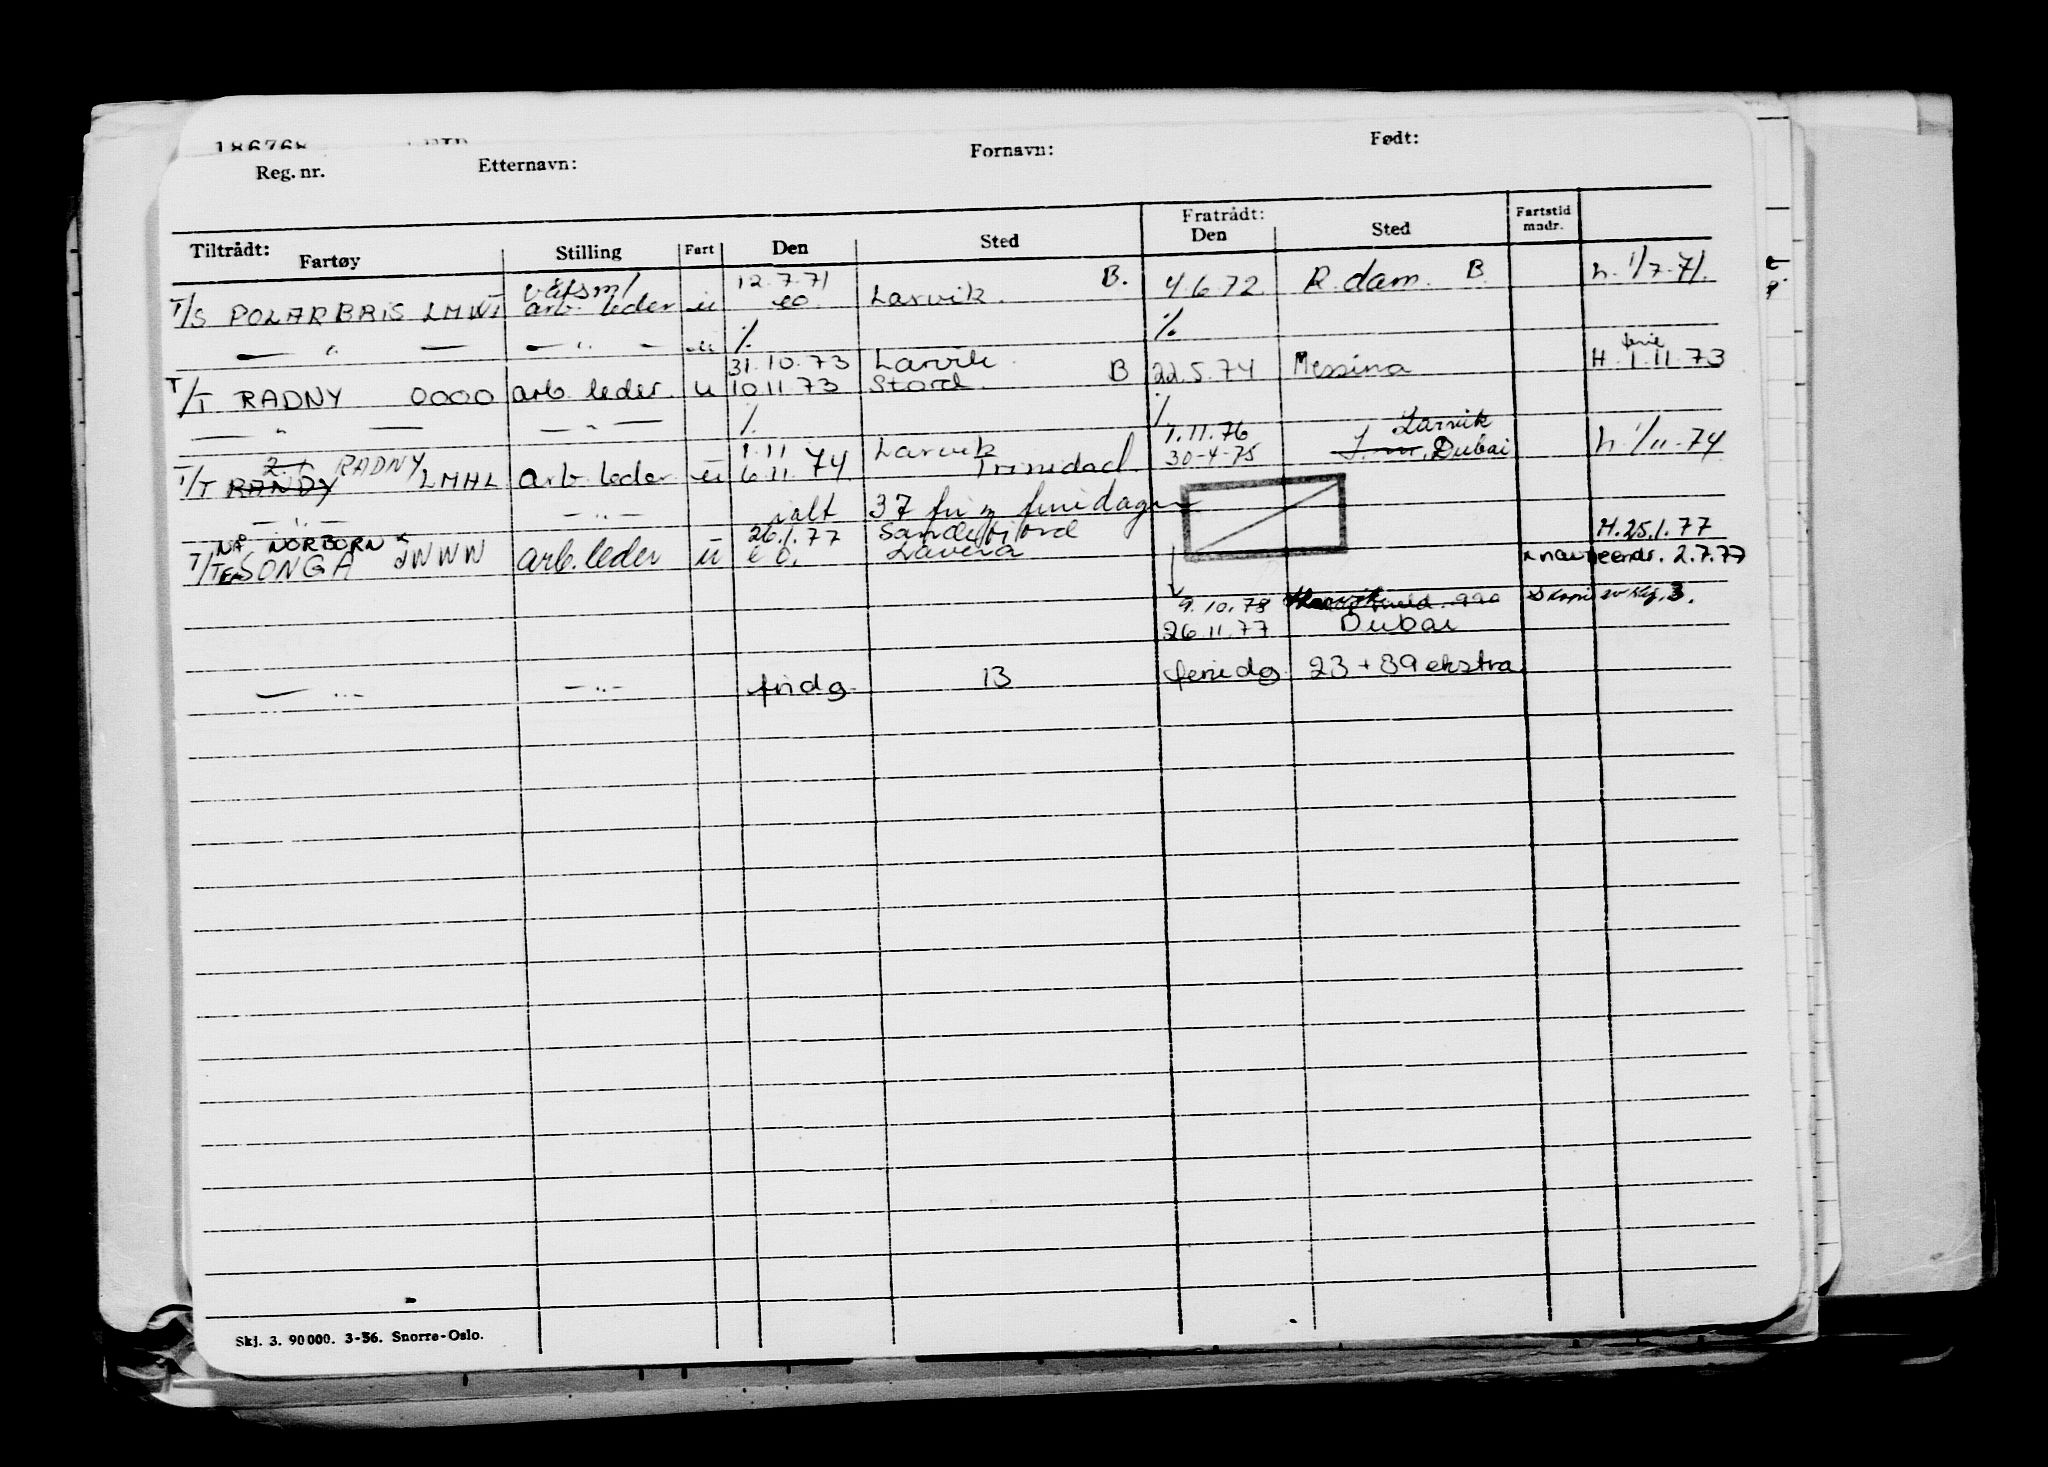 186768
Reg. nr. Etternavn: Fornavn: Født:
Tiltrådt: Fratrådt:
Fartøy Stilling Fart Den Sted Den Sted Fartstid mndr.
12.7.71
T/S POLARBRIS LMWI arb. leder u eo. Larvik. B. 4.6.72 R.dam. B. h. 1/7.71.
— " — — " — u % %
31.10.73 Larvik ferie
T/T RADNY 0000 arb. leder. u 10.11.73 Stord. B 22.5.74 Messina H. 1.11.73
— " — — " — % %
1.11 Larvik 1.11.76 Larvik
T/T RANDY RADNY LMHL arb. leder u 6.11.74 Trinidad. 30-4-75 Dubai h 1/11-74
— " — — " — ialt 37 fri feriedager
NÅ NORBORN 26.1.77 Sandefjord H. 25.1.77
T/T SONGA JWWW arb. leder u e o. Lavera 2.7.77
9.10.78
26.11.77 Dubai
— " — — " — fridg. 13 feriedg. 23 + 39 ekstra
Skj. 3. 90 000. 3-56. Snorre-Oslo.